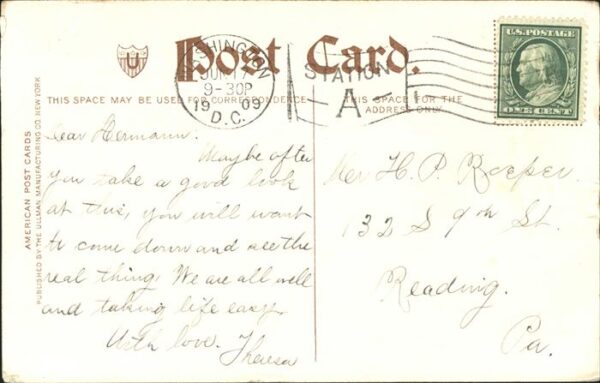 U
Post Card.
WASHINGTON
JUN 17
9-30P
1909
D.C.
STATION
A
U.S. POSTAGE
ONE CENT
THIS SPACE MAY BE USED FOR CORRESPONDENCE
THIS SPACE IS FOR THE
ADDRESS ONLY.
AMERICAN POST CARDS.
PUBLISHED BY THE ULLMAN MANUFACTURING CO. NEW YORK
Dear Hermann:
Maybe after
you take a good look
at this, you will want
to come down and see the
real thing. We are all well
and taking life easy.
With love. Theresa
H. P.
132 S 9th St.
Reading.
Pa.